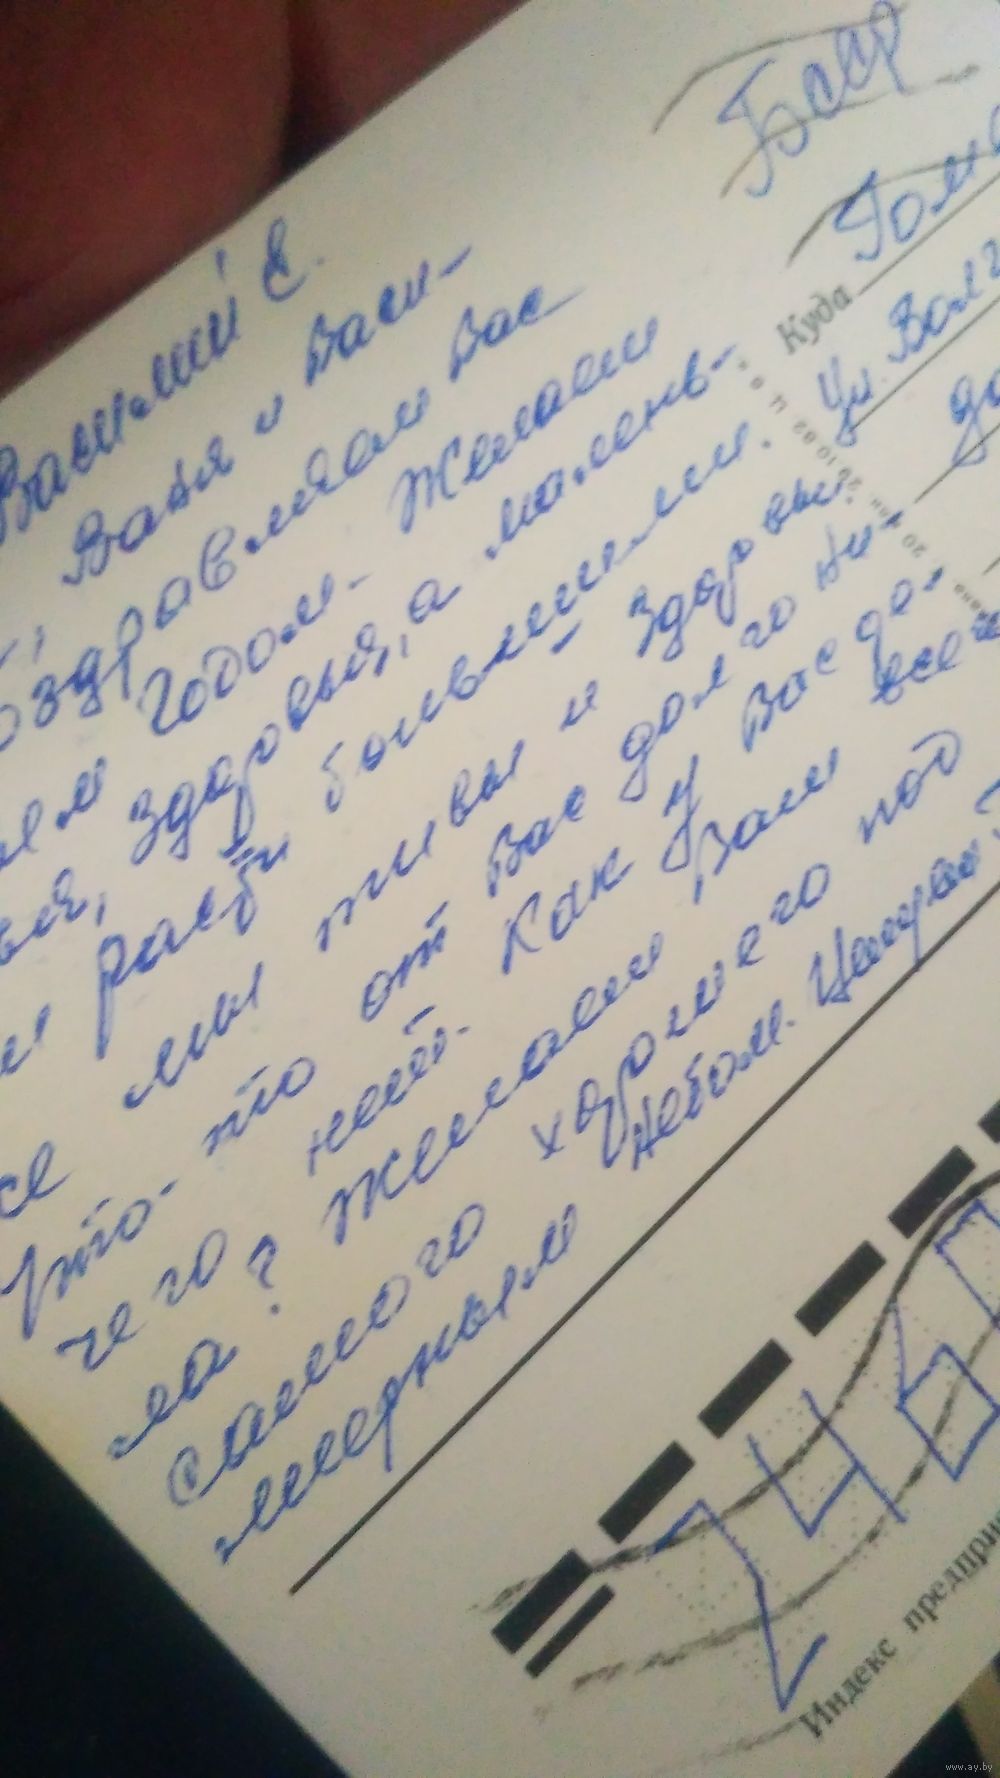 Василий Е.
Валя и Васи-
поздравляем Вас
годом. Желаем
здоровья, а малень-
расти большими.
мы живы и здоровы.
Что-то от Вас долго ни-
чего нет. Как у Вас де-
ла? Желаем Вам все
самого хорошего под
мирным небом. Целуем
БССР
Куда Гоме
Ул. Волг
246
Индекс предпри
www.ay.by